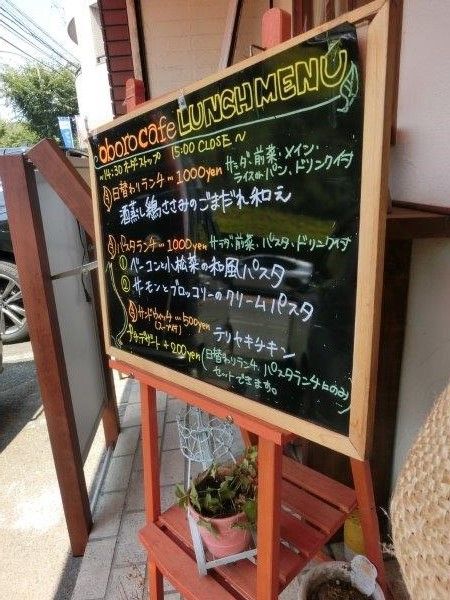 oboro cafe LUNCH MENU
~14:30 オーダーストップ 15:00 CLOSE~
日替わりランチ…1000yen サラダ・前菜・メイン・
ライスorパン、ドリンク付
酒蒸し鶏ささみのごまだれ和え
パスタランチ…1000yen サラダ・前菜・パスタ・ドリンク付
① ベーコンと小松菜の和風パスタ
② サーモンとブロッコリーのクリームパスタ
サンドウィッチ…500yen テリヤキチキン
(スープ付)
プチデザート+200yen (日替わりランチ、パスタランチにのみ
セットできます。)